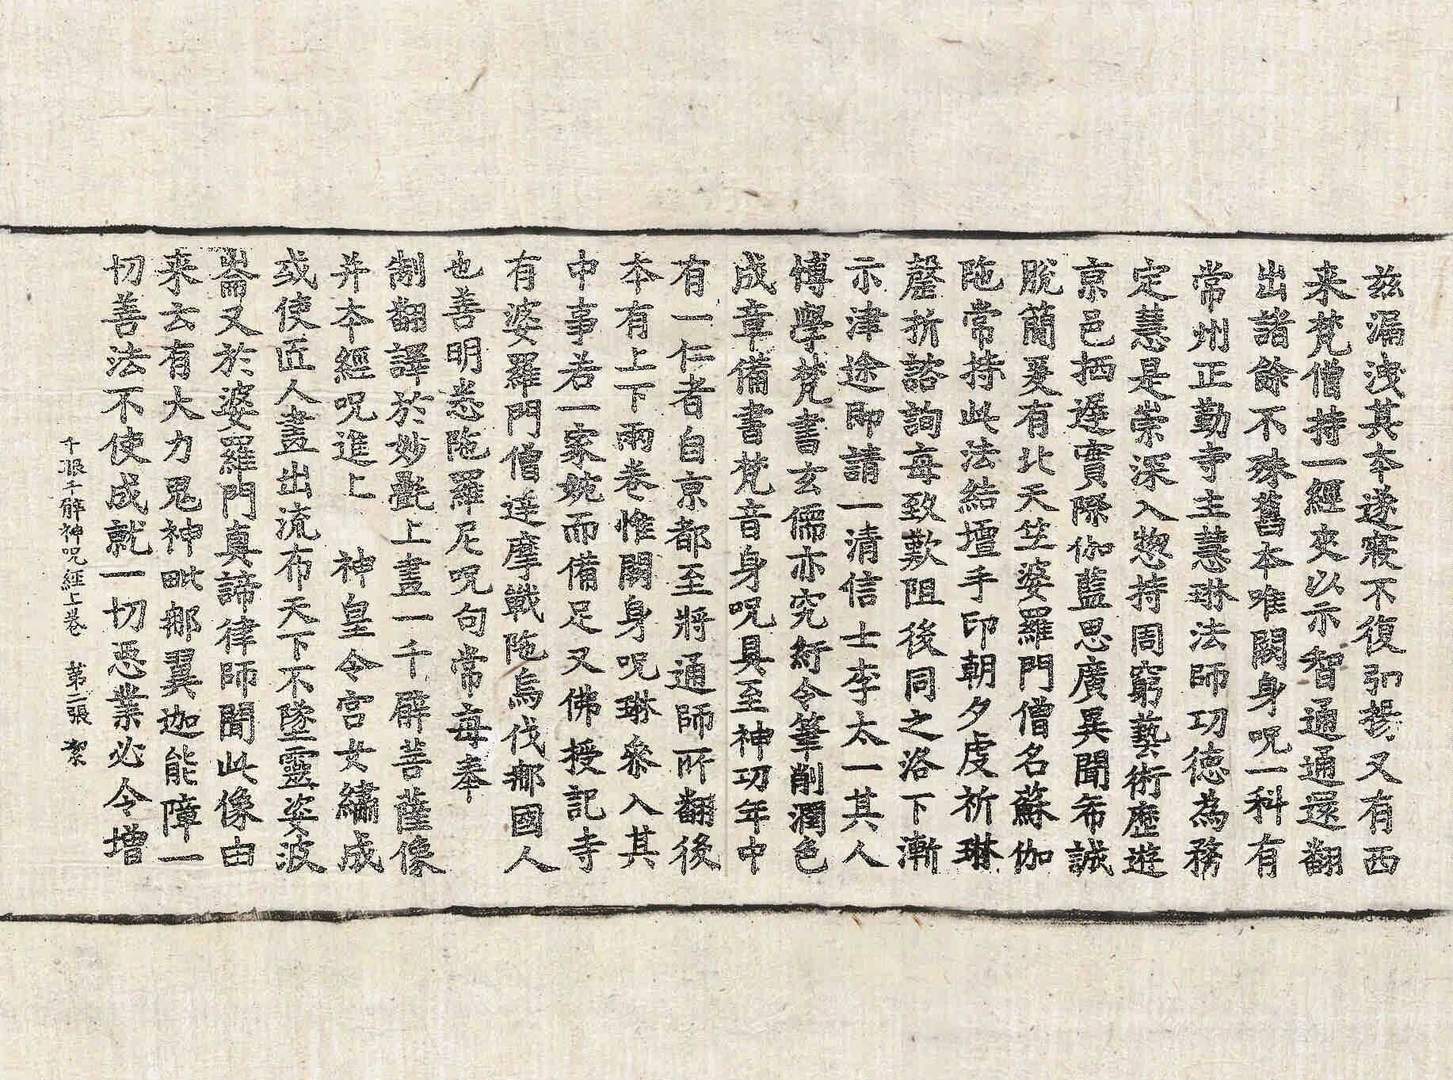 茲漏洩其本遂寢不復弘揚又有西
来梵僧持一經夾以示智通通還翻
出諸餘不殊舊本唯闕身呪一科有
常州正勤寺主慧琳法師功德為務
定慧是崇深入惣持周窮藝術歷遊
京邑栖遲實際伽藍思廣異聞希誠
脫簡爰有北天竺婆羅門僧名蘇伽
陁常持此法結壇手印朝夕虔祈琳
罄折諮詢每致歎阻後同之洛下漸
示津途即請一清信士李太一其人
博學梵書玄儒亦究紆令筆削潤色
成章備書梵音身呪具至神功年中
有一仁者自京都至將通師所翻後
本有上下兩卷惟闕身呪琳參入其
中事若一家婉而備足又佛授記寺
有婆羅門僧達摩戰陁烏伐郍國人
也善明悉陁羅尼呪句常每奉
制翻譯於妙氎上畫一千臂菩薩像
并本經呪進上 神皇令宮女繡成
或使匠人畫出流布天下不墜靈姿波
崙又於婆羅門真諦律師聞此像由
来云有大力鬼神毗郍翼迦能障一
切善法不使成就一切惡業必令增
千眼千臂神呪經上卷 第二張 絜